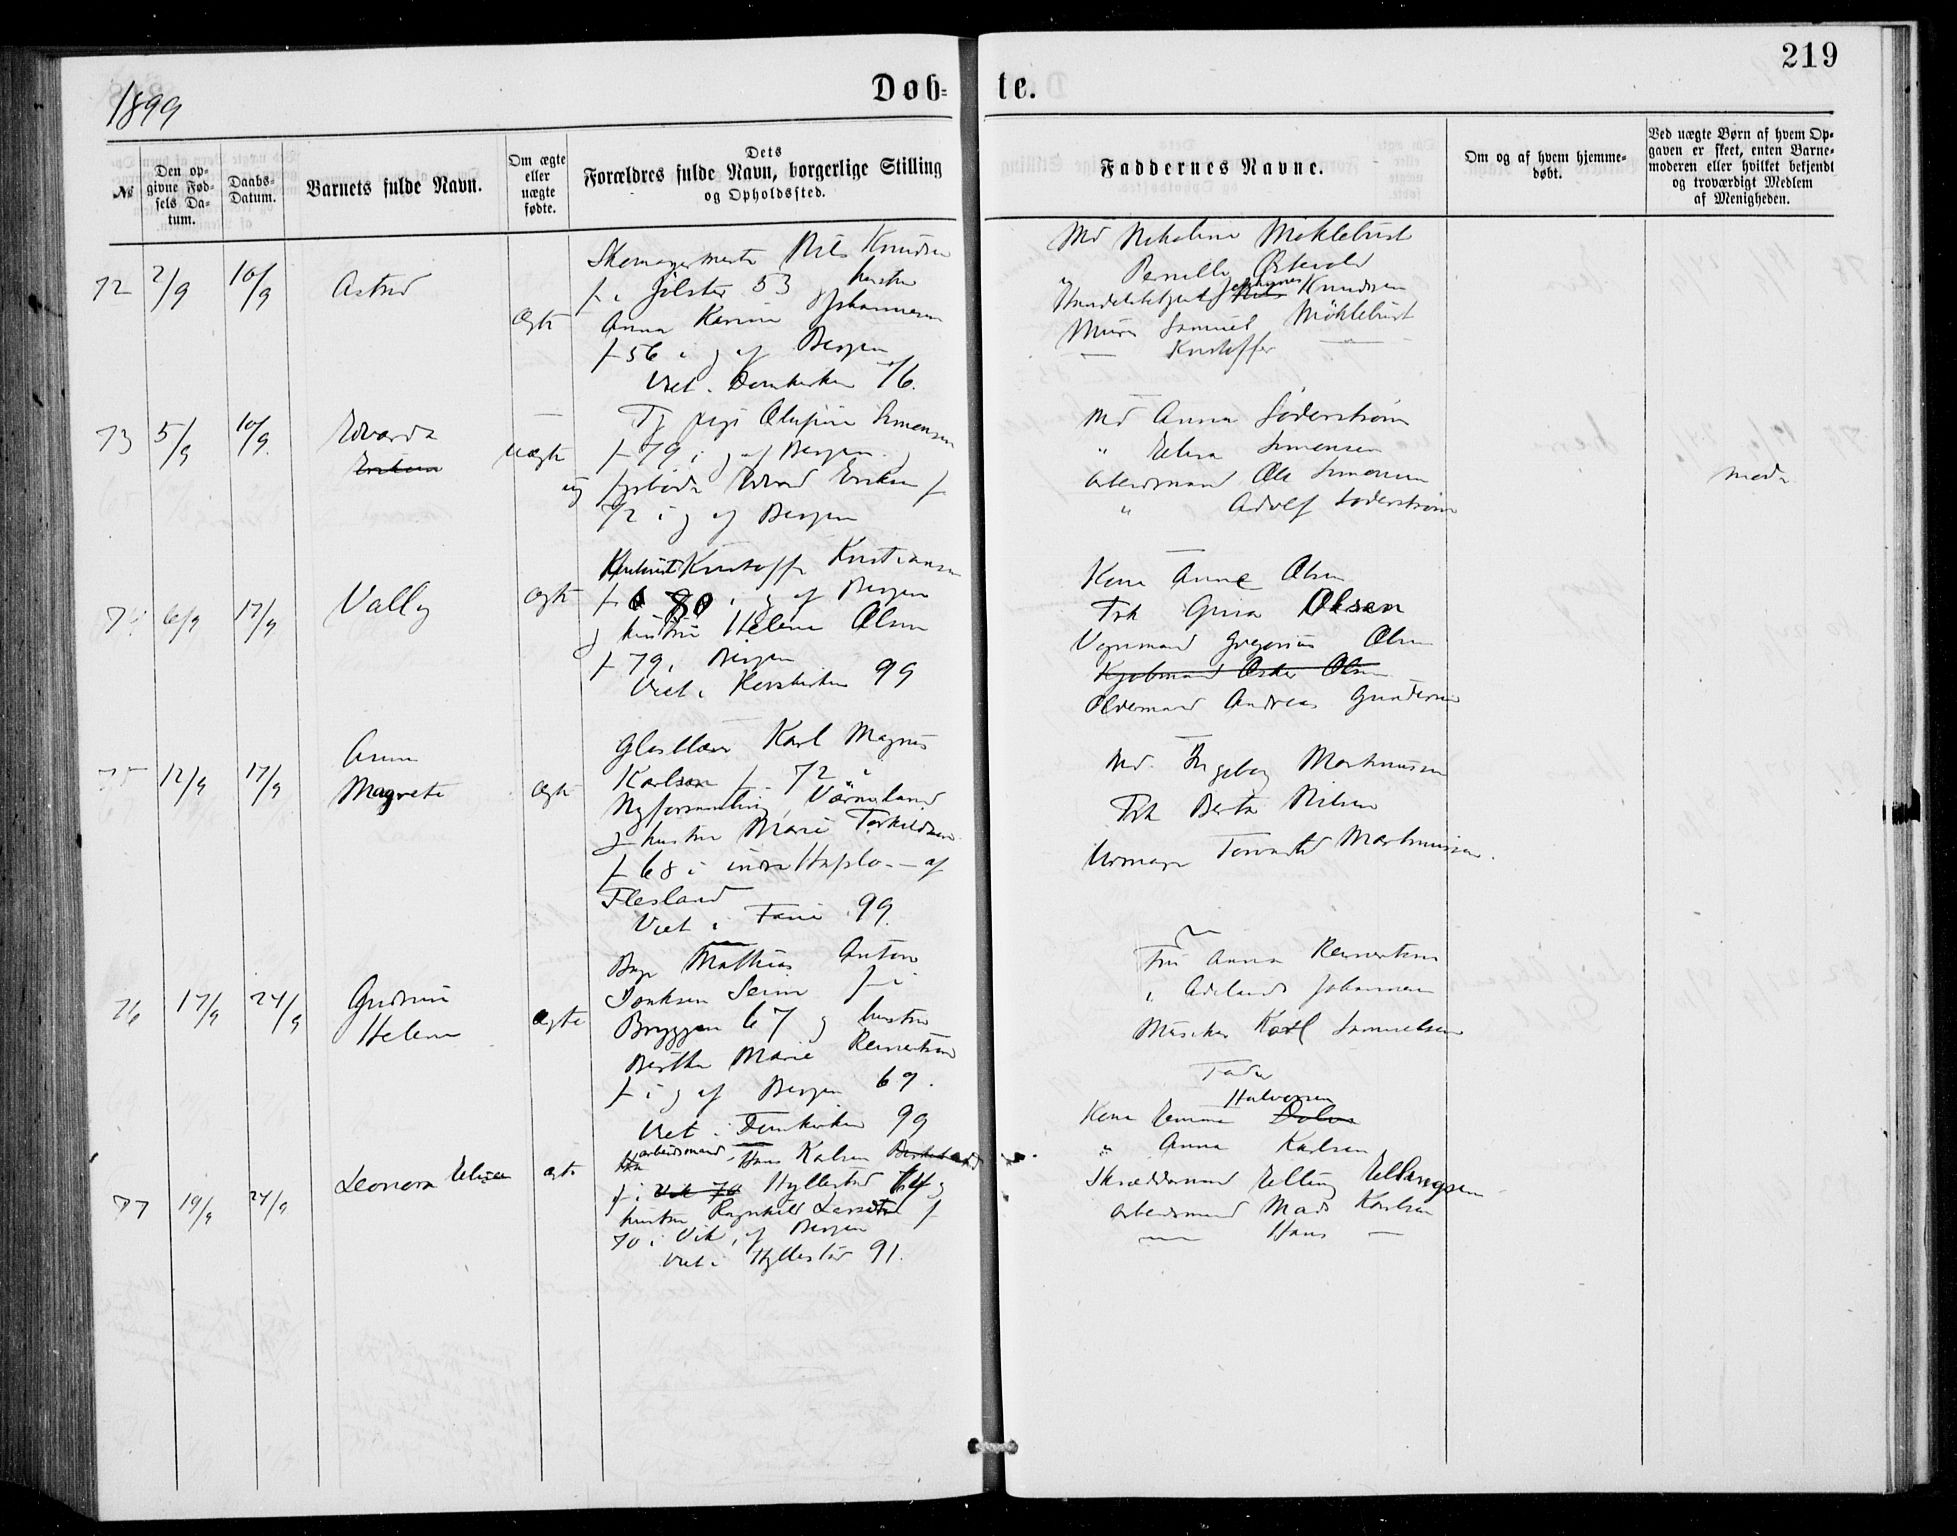 219
1899
Døb-
te.
№
Den opgivne Fødsels Datum.
Daabs-Datum.
Barnets fulde Navn.
Om ægte eller uægte fødte.
Dets Forældres fulde Navn, borgerlige Stilling og Opholdssted.
Faddernes Navne.
Om og af hvem hjemmedøbt.
Ved uægte Børn af hvem Opgaven er skeet, enten Barnemoderen eller hvilket bekjendt og troværdigt Medlem af Menigheden.
72 2/9 10/9 Astrid
ægte
Skomagermester Nils Knudsen
f i Jølster 53 hustru
Anna Karine Johannesen
f 56 i g af Bergen
Viet i Domkirken 76.
Md Nikoline Møklebust
" Pernille
Johannes Knudsen
Murer Samuel Møklebust
— Kristoffer —
73 5/9 10/9. Edvarda
uægte
Tj pige Olufine Simensen
f 79 i g af Bergen
og Edvard Eriksen f
72 i g af Bergen
Md Anna Søderstrøm
" Elisa Simensen
Arbeidsmand Ole Simensen
" Adolf Søderstrøm
moder
74 6/9 17/9 Vally
ægte
Kristoffer Kristiansen
f 80 i g af Bergen
g hustru Helene Olsen
f 79 i Bergen
Viet i Korskirken 99
Kone Anne Olsen
Frk Gina Olsen
Vognmand Gregorius Olsen
Kjøbmand Oskar Olsen
Oldermand Andreas Gundersen
75 12/9 17/9 Anna
Magrete
ægte
Glasblæser Karl Magnus
Karlson f 72 i
Nyforsamling, Värmland
g hustru Marie Torkildsen
f 68 i indre af
Flesland
Viet i Fane 99.
Md. Ingeborg Martinussen
Frk Berta Nilsen
Urmager Martinussen.
76 17/9 24/9 Gudrun
Helene
ægte
Mathias Anton
Seim f i
Bryggen 67 g hustru
Bertha Marie Reinertsen
f i g af Bergen 69.
Viet i Domkirken 99
Fru Anna Reinertsen
" Johannesen
Musiker Karl Samuelsen
Fader
77 19/9 24/9 Leonora Elisa
ægte
arbeidsmand Hans Karlsen
f i Vik 70 Hyllestad 64 g
hustru Ragnhild f
70 i Vik, af Bergen
Viet i Hyllestad 91.
Halvorsen
Kone Emma
" Anna Karlsen
Skræddersvend Elling Ellingsen
Arbeidsmand Mads Karlsen
— Hans —